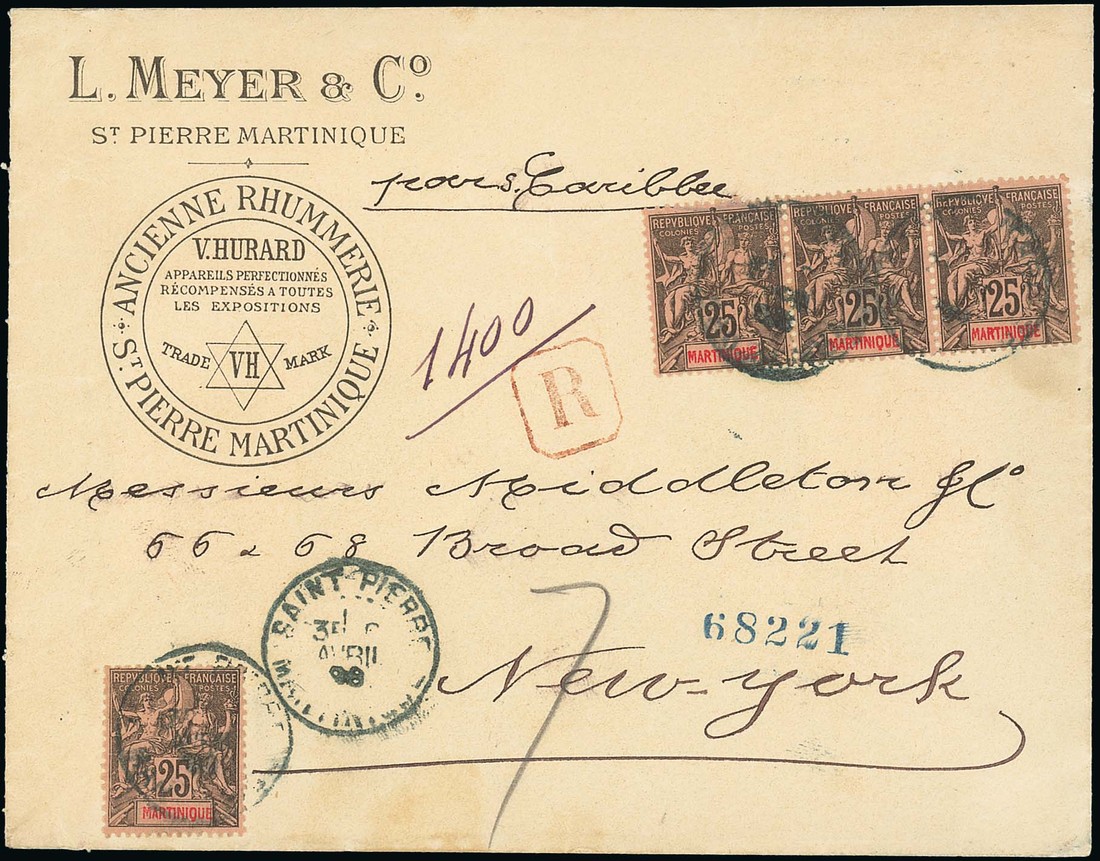 L. MEYER & Cº.
Sᵀ PIERRE MARTINIQUE
ANCIENNE RHUMMERIE
V. HURARD
APPAREILS PERFECTIONNÉS
RÉCOMPENSÉS A TOUTES
LES EXPOSITIONS
TRADE VH MARK
Sᵀ PIERRE MARTINIQUE
par s. Caribbee
REPUBLIQUE FRANÇAISE
COLONIES POSTES
25
MARTINIQUE
REPUBLIQUE FRANÇAISE
COLONIES POSTES
25
MARTINIQUE
REPUBLIQUE FRANÇAISE
COLONIES POSTES
25
MARTINIQUE
1400
R
Messieurs Middleton & Cº
66 a 68 Broad Street
68221
New-York
7
SAINT-PIERRE
AVRIL
REPUBLIQUE FRANÇAISE
COLONIES POSTES
25
MARTINIQUE